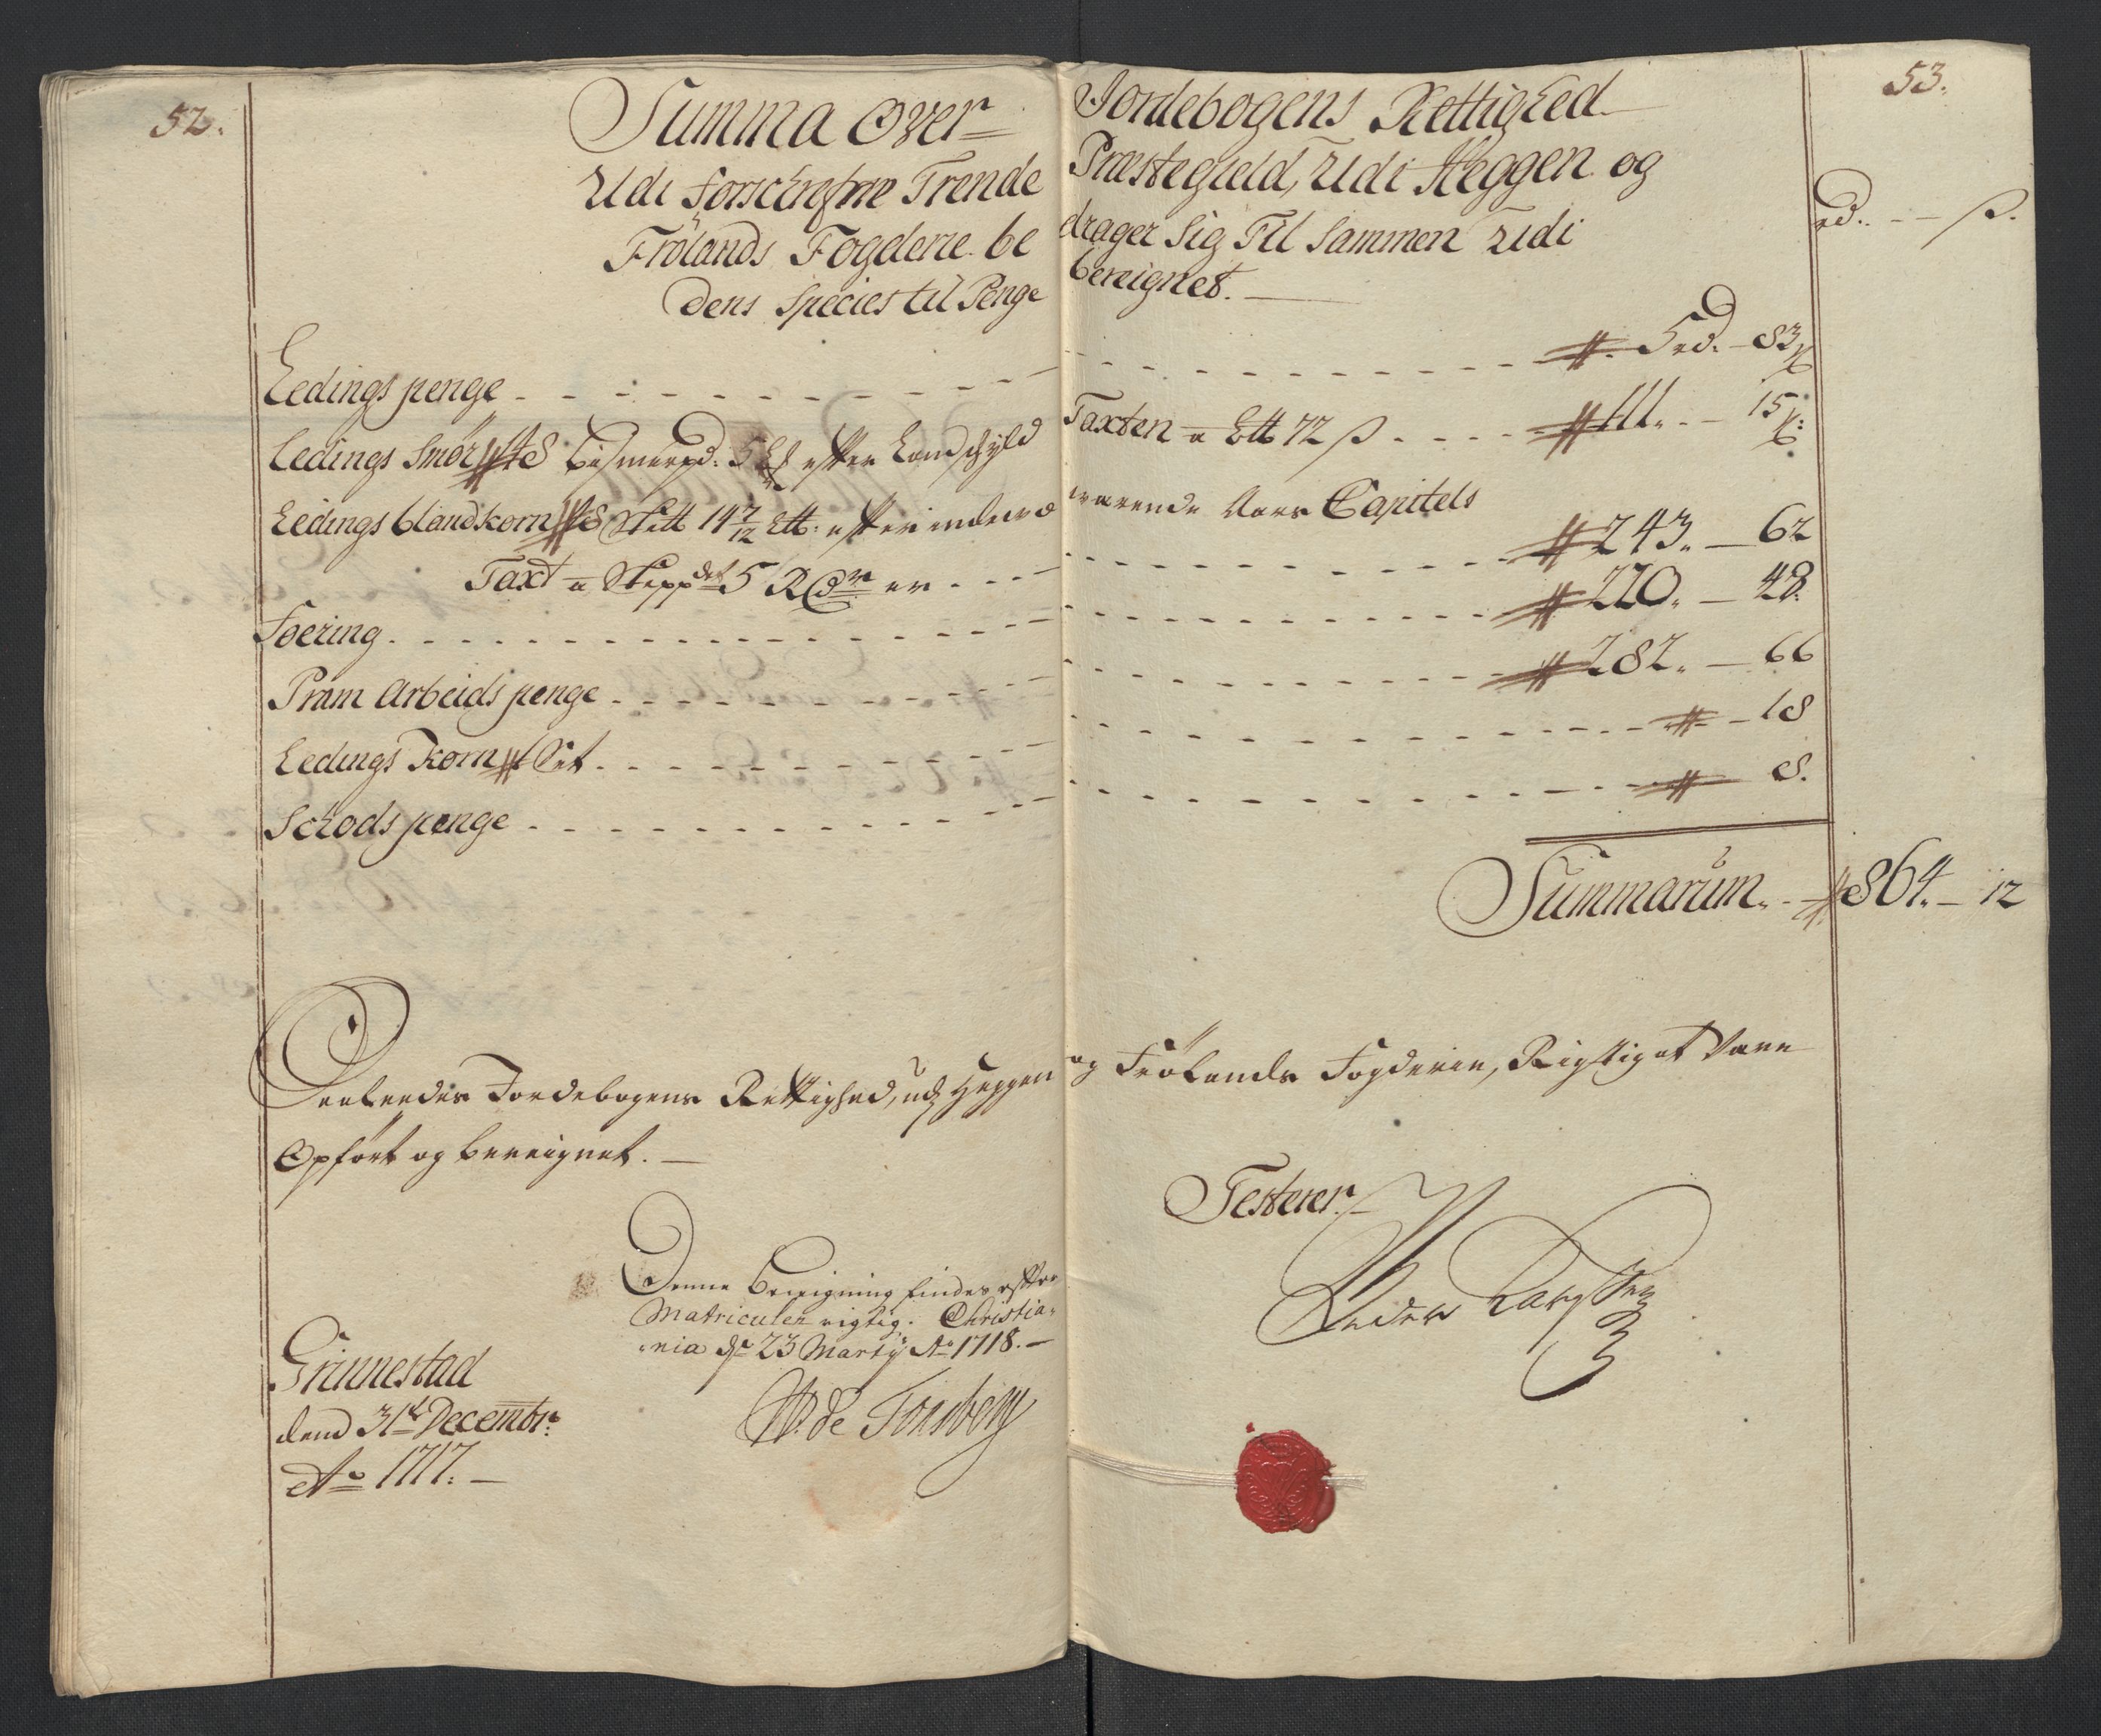 52.
53.
Summa Over Jordebogens Rettighed
Udi forschrefne Trende Præstegield, Udi Heggen og
Frölands Fogderie bedrager Sig Til Sammen Udi
Dens Species til Penge bereignet.
rd. - - ß.
Ledings penge - - - 5 rd. - 83
Ledings Smör 48 Bismerpd. 5 efter Landschyld Taxten a 72 ß - - - 111. - 15
Ledings blandkorn 48 Sett 14 7/12 efter inderværende Aars Capitels
Taxt a 5 er - - - 243. - 62
Foering - - - 220. - 48
Pram Arbeids penge - - - 282. - 66
Ledings Korn 1 Set - - - 18
Schods penge - - - 8.
Summarum. - 864. - 12
Saaledes Jordebogens Rettighed, udj Heggen og Frölands Fogderie, Rigtig at Være
Opfört og bereignet.
Testerer
Peder Karstens
Denne Bereigning findes efter
Matriculen rigtig. Christia-
nia de 23 Martij Ao 1718.
de Tonsberg
Grinnestad
dend 31te Decembr:
Ao 1717.